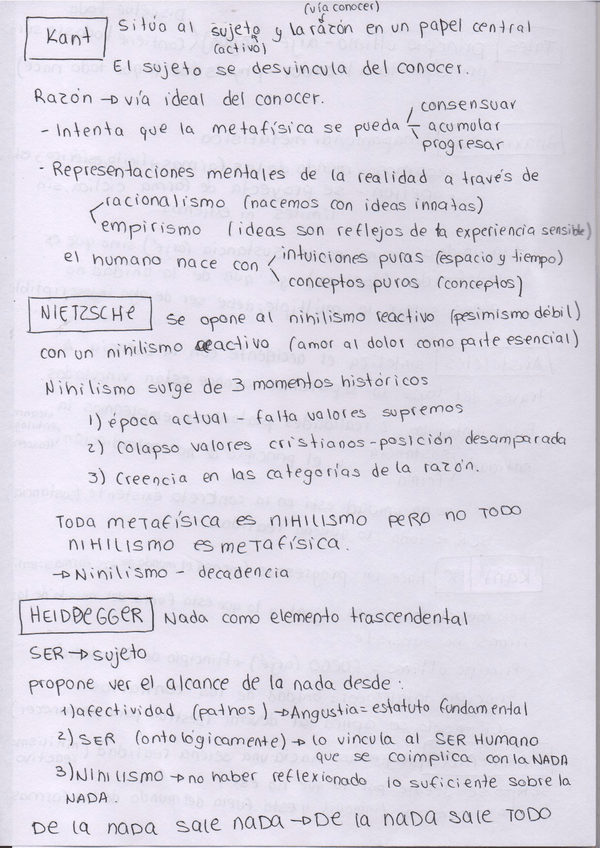 (vía conocer)
Kant Sitúa al sujeto y la razón en un papel central
(activo)
El sujeto se desvincula del conocer.
Razón → vía ideal del conocer.
- Intenta que la metafísica se pueda consensuar
acumular
progresar
- Representaciones mentales de la realidad a través de
racionalismo (nacemos con ideas innatas)
empirismo (ideas son reflejos de la experiencia sensible)
el humano nace con intuiciones puras (espacio y tiempo)
conceptos puros (conceptos)
NIETZSCHE se opone al nihilismo reactivo (pesimismo débil)
con un nihilismo activo (amor al dolor como parte esencial)
Nihilismo surge de 3 momentos históricos
1) época actual - falta valores supremos
2) Colapso valores cristianos - posición desamparada
3) Creencia en las categorías de la razón.
TODA METAFÍSICA ES NIHILISMO PERO NO TODO
NIHILISMO ES METAFÍSICA.
→ Nihilismo - decadencia
HEIDDEGGER Nada como elemento trascendental
SER → sujeto
propone ver el alcance de la nada desde:
1) afectividad (pathos) → Angustia = estatuto fundamental
2) SER (ontológicamente) → lo vincula al SER HUMANO
que se coimplica con la NADA
3) NIHILISMO → no haber reflexionado lo suficiente sobre la
NADA.
De la NADA SALE NADA → De la NADA SALE TODO